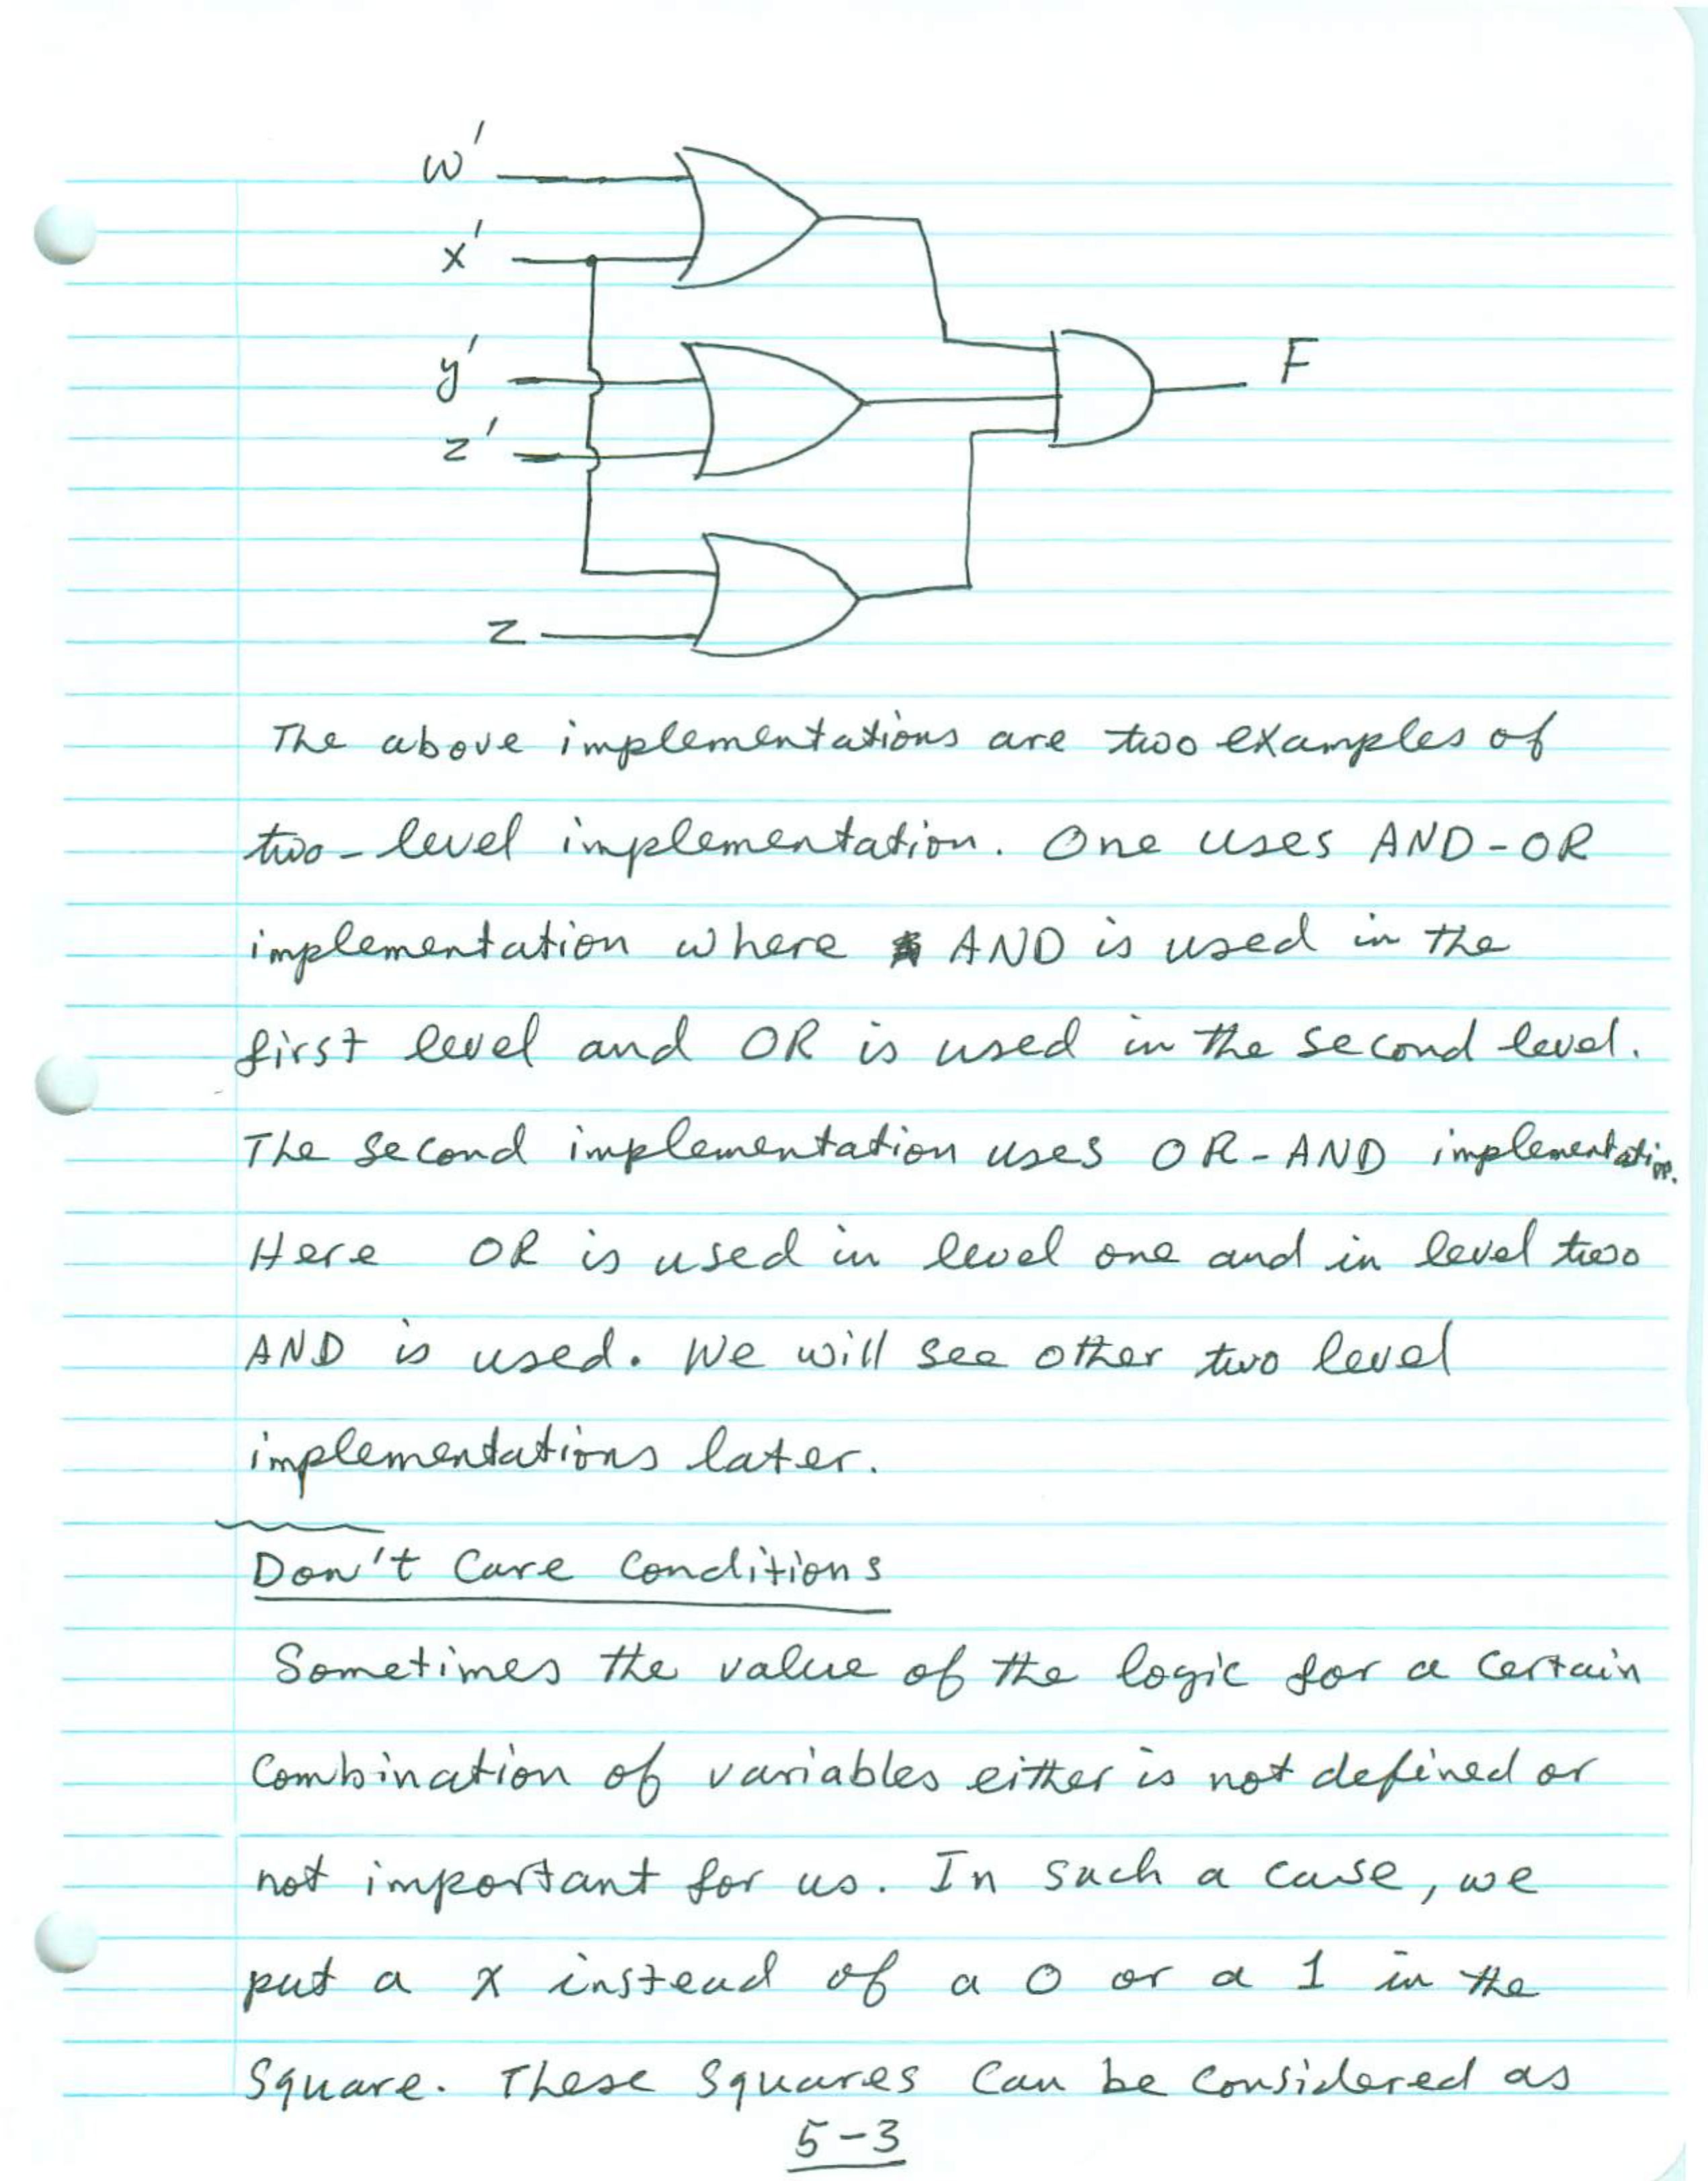 w'
x'
y'
z'
F
z
The above implementations are two examples of
two-level implementation. One uses AND-OR
implementation where AND is used in the
first level and OR is used in the second level.
The second implementation uses OR-AND implementation.
Here OR is used in level one and in level two
AND is used. We will see other two level
implementations later.
Don't Care Conditions
Sometimes the value of the logic for a certain
Combination of variables either is not defined or
not important for us. In such a case, we
put a x instead of a 0 or a 1 in the
Square. These squares can be considered as
5-3